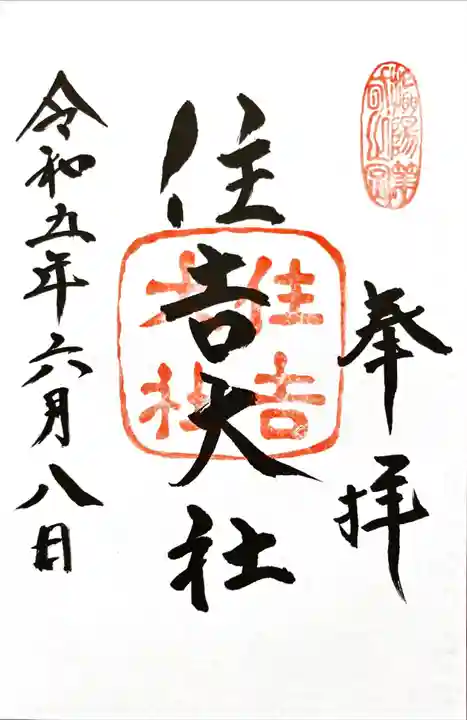 奉拝
住吉大社
住吉大社
令和五年六月八日